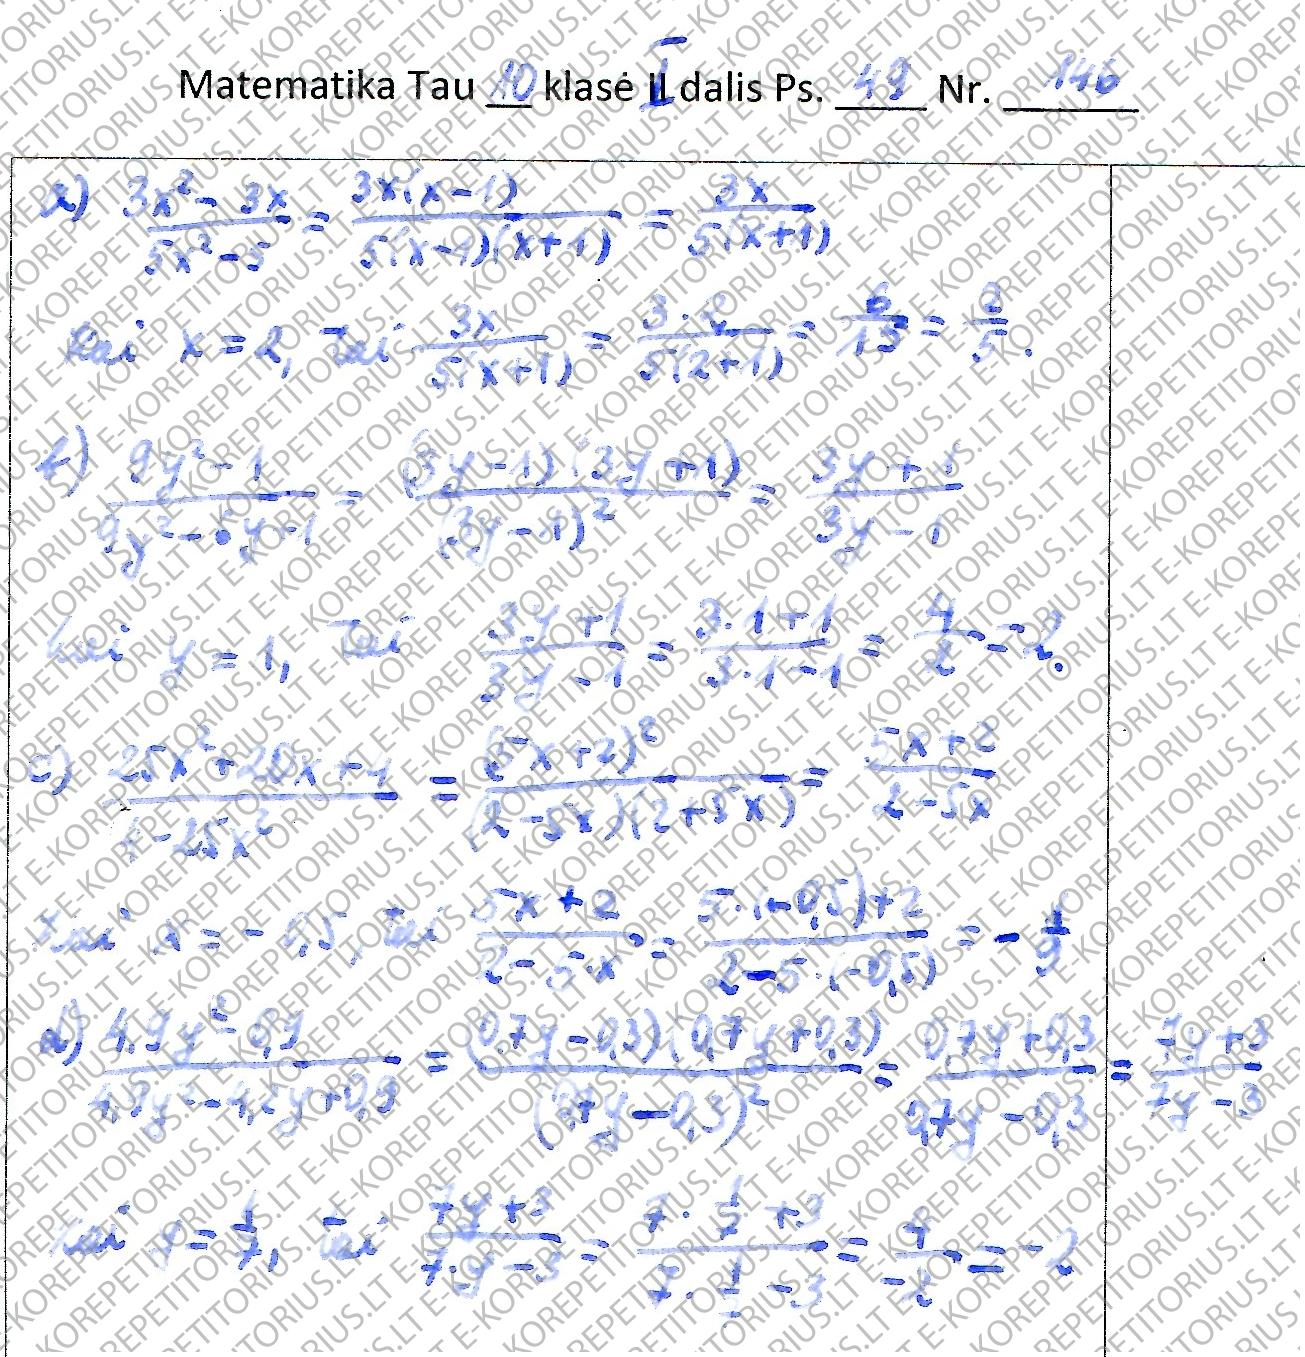 Matematika Tau 10 klasė I dalis Ps. 49 Nr. 146
a) (3x² - 3x)/(5x² - 5) = 3x(x-1)/(5(x-1)(x+1)) = 3x/(5(x+1))
kai x = 2, tai 3x/(5(x+1)) = (3·2)/(5(2+1)) = 6/15 = 2/5.
b) (9y² - 1)/(9y² - 6y + 1) = (3y-1)(3y+1)/(3y-1)² = (3y+1)/(3y-1)
kai y = 1, tai (3y+1)/(3y-1) = (3·1+1)/(3·1-1) = 4/2 = 2.
c) (25x² + 20x + 4)/(4 - 25x²) = (5x+2)²/((2-5x)(2+5x)) = (5x+2)/(2-5x)
kai x = -0,5, tai (5x+2)/(2-5x) = (5·(-0,5)+2)/(2-5·(-0,5)) = -1/9
d) (4,9y² - 0,9)/(4,9y² - 4,2y + 0,9) = (0,7y-0,3)(0,7y+0,3)/(0,7y-0,3)² = (0,7y+0,3)/(0,7y-0,3) = (7y+3)/(7y-3)
kai y = 1/7, tai (7y+3)/(7·y-3) = (7·1/7+3)/(7·1/7-3) = 4/-2 = -2